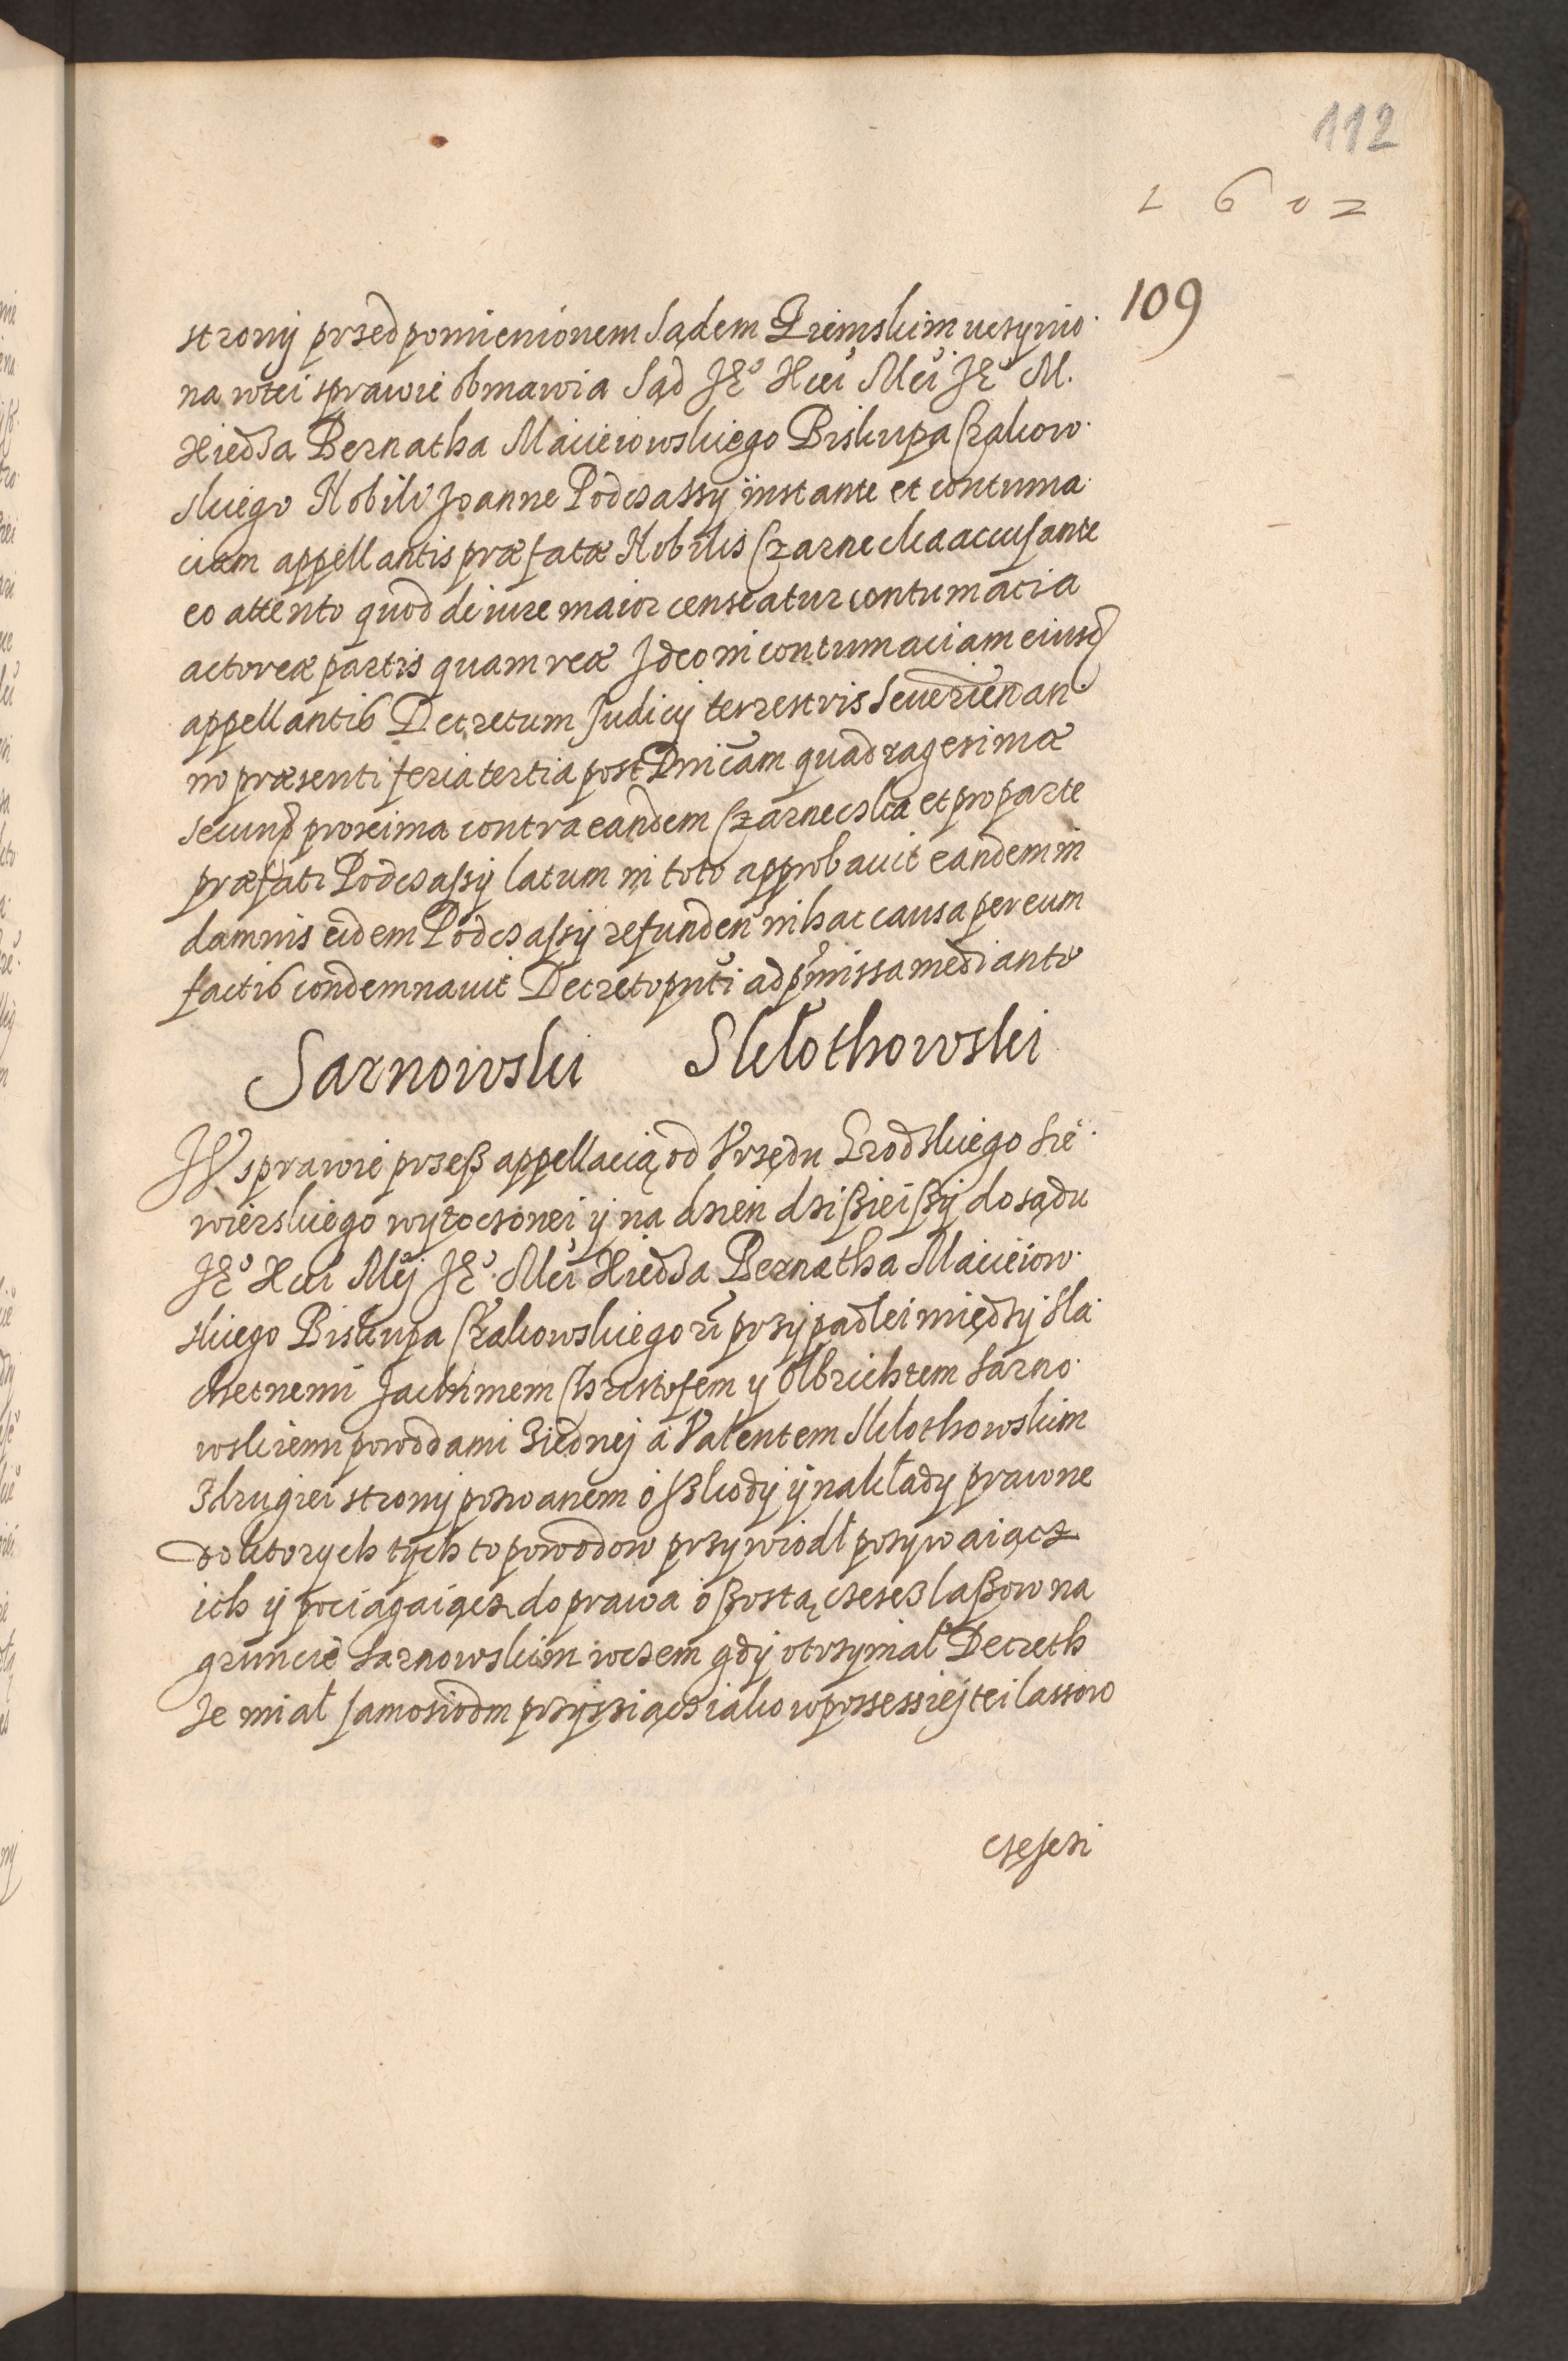 112
1602
109
strony przed pomienionem Sądem Ziemskim uczynio
na wtei sprawie odmawia Sąd JE° Xcei Mci JE° M.
Xiedza Bernatha Macieiowskiego Biskupa Krakow
skiego Nobili Joanne Podczassy instante et contuma
ciam appellantis præfatæ Nobilis Czarnecka accusante
eo attento quod de iure maior censeatur contumacia
actoreæ partis quam reæ Ideo in contumaciam eiusd
appellantis Decretum Judicij terrestris Seuerien an
no præsenti feria tertia post Dnicam quadragesimæ
secund proxima contra eandem Czarnecska et pro parte
præfati Podczassy latum in toto approbauit eandem in
damnis eidem Podczassy refunden in hac causa per eum
factis condemnauit Decreto pnti ad pmissa mediante
Sarnowski Skłothowski
W sprawie przeß appellacią od Vrzędu Grodskiego Sie
wierskiego wytoczonei ij na dzien dzißieißy do sądu
JE° Xcei Mcj JE° Mci Xiedza Bernatha Macieiow
skiego Biskupa Krakowskiego rc przypadłei między sla
chetnemi Jachimem Christofem y Olbrichtem Sarno
wskiemi powodami z iednej a Valentem Skłothowskim
z drugiei strony pozwanem o sskody ij nakłady prawne
do ktorych tych to powodow przywiodł pozywaiącz
ich ij pociągaiącz do prawa o ßostą czesc z laßow na
gruncie Sarnowskim wczem gdy otrzymał Decreth
ze miał samosiodm przysziącz iako w possessiej tei lassow
czesczi